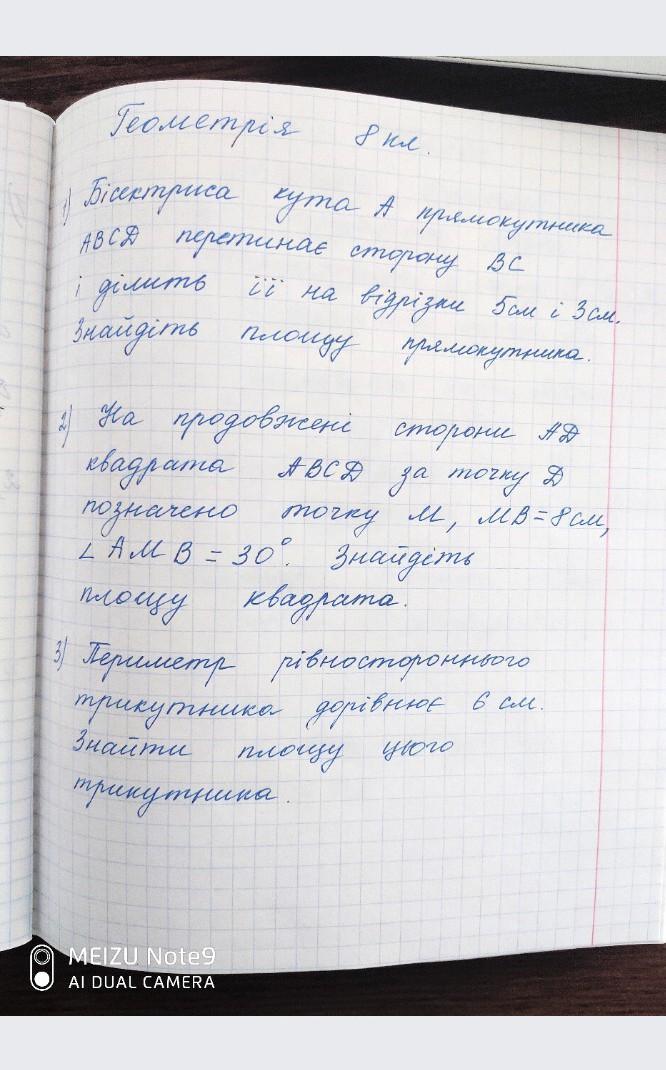 Геометрія 8 кл.
1) Бісектриса кута А прямокутника
ABCD перетинає сторону BC
і ділить її на відрізки 5см і 3см.
Знайдіть площу прямокутника.
2) На продовжені сторони AD
квадрата ABCD за точку D
позначено точку M, MB=8см,
∠AMB=30°. Знайдіть
площу квадрата.
3) Периметр рівностороннього
трикутника дорівнює 6 см.
Знайти площу цього
трикутника.
MEIZU Note9
AI DUAL CAMERA